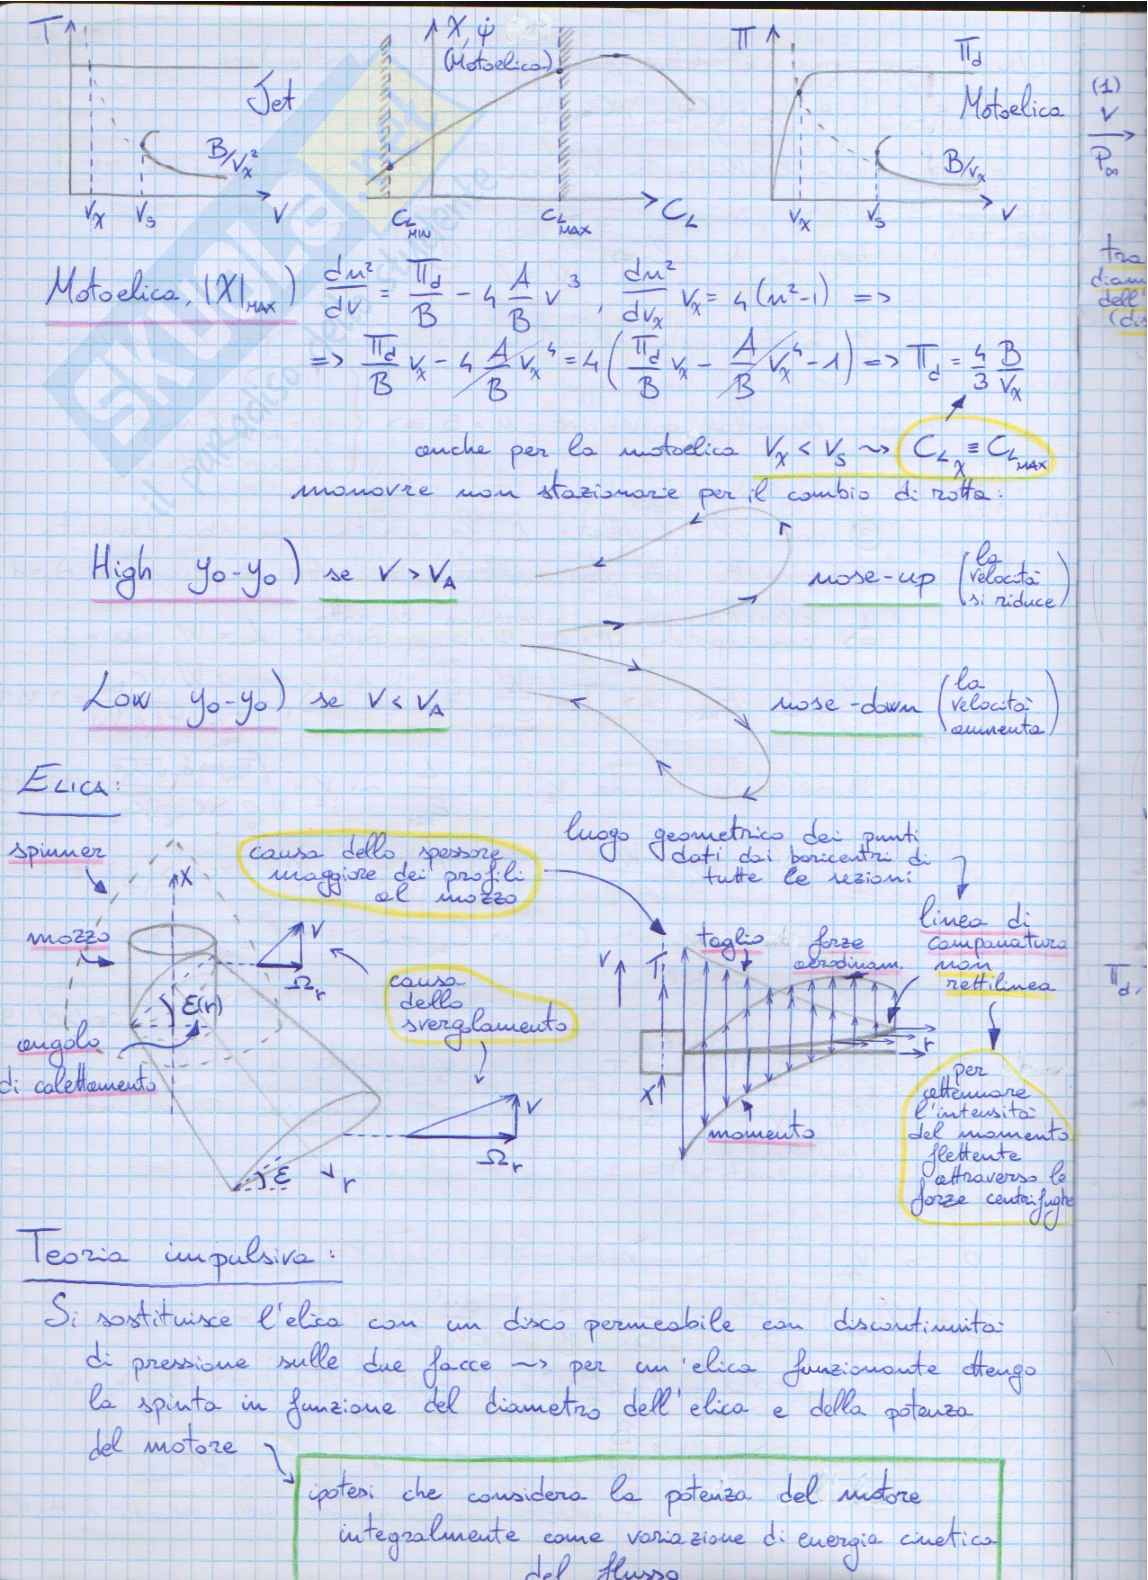 T
Jet
B/Vx²
Vχ
Vs
V
χ, ψ̇
(Motoelica)
CL MIN
CL MAX
CL
Π
Πd
Motoelica
B/Vx
Vχ
Vs
V
(1)
V
P∞
Motoelica, |χ|MAX) dn²/dV = Πd/B - 4 A/B V³, dn²/dVχ Vχ = 4(n²-1) =>
=> Πd/B Vχ - 4 A/B Vχ⁴ = 4(Πd/B Vχ - A/B Vχ⁴ - 1) => Πd = 4/3 B/Vχ
anche per la motoelica Vχ < Vs ~> CLχ ≡ CL MAX
manovre non stazionarie per il cambio di rotta:
High yo-yo) se V > VA
nose-up (la velocità si riduce)
Low yo-yo) se V < VA
nose-down (la velocità aumenta)
ELICA:
spinner
mozzo
angolo
di calettamento
X
ε(r)
V
Ωr
causa dello spessore
maggiore dei profili
al mozzo
causa
dello
svergolamento
V
Ωr
ε
r
luogo geometrico dei punti
dati dai baricentri di
tutte le sezioni
linea di
campanatura
non
rettilinea
V
T
taglio
forze
aerodinam.
r
X
momento
per
attenuare
l'intensità
del momento
flettente
attraverso le
forze centrifughe
Πd
Teoria impulsiva:
Si sostituisce l'elica con un disco permeabile con discontinuità
di pressione sulle due facce ~> per un'elica funzionante ottengo
la spinta in funzione del diametro dell'elica e della potenza
del motore
ipotesi che considera la potenza del motore
integralmente come variazione di energia cinetica
del flusso